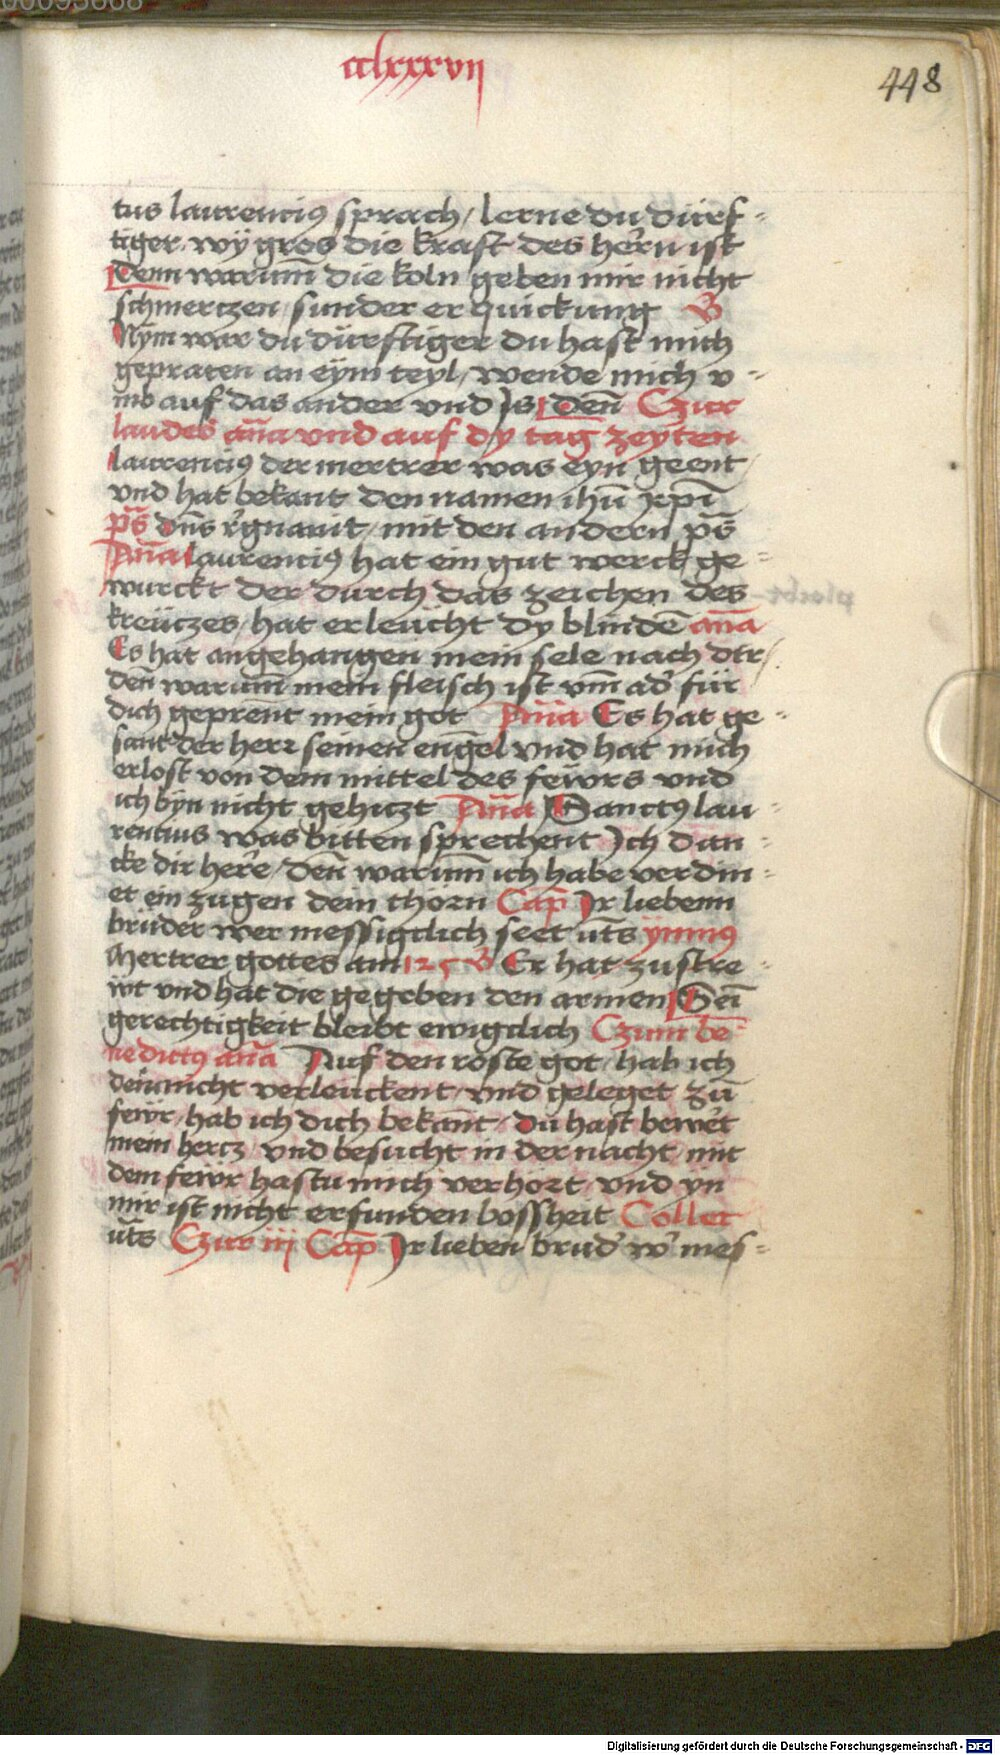 cclxxxvij
448
tus laurencius sprach / lerne du dürf-
tiger. wÿ gros die kraft des herrn ist
Denn warum̄ die koln geben mir nicht
schmerczen / sunder er quickung V
Nÿm war du dürftiger du hast mich
gepraten an eÿm teyl / wende mich v-
mb auf das ander vnd Js Den̄ Czur
laudes an̄a vnd auf dy tag zeyten
laurencius der mertrer was eyn geent
vnd hat bekant den namen ihū xpī
ps̄ dn̄s r̄gnauit / mit den andern ps̄
An̄a laurencius hat ein gut werck ge-
wurckt der durch das zeichen des
kreüczes / hat erleücht dy blinden̄ an̄a
Es hat angehangen mein sele nach dir /
den̄ warum̄ mein fleisch ist vm̄ ad̕ für
dich geprent mein got An̄a Es hat ge-
sant der herr seinen engel vnd hat mich
erlost von dem mittel des feẅrs vnd
ich bÿn nicht gehiczt An̄a Sanctus lau-
rentius was bitten sprechent Jch dan-
cke dir here / den̄ warum̄ ich habe verdin-
et ein zugen dein thörn Cap̄ Jr liebenn
brüder wer messigclich seet ut̄s ÿmnus
Mertrer gottes am 125 V Er hat zustre-
wt vnd hat die gegeben den armen Sei
gerechtigkeit bleibt ewigclich Czum be-
nedictus an̄a Auf den röste got / hab ich
dein nicht verleuckent / vnd geleget zū
feẅr / hab ich dich bekant / du hast bewe̕t
mein hercz / vnd besucht in der nacht / mit
dem feẅr hastu mich verhört / vnd yn
mir ist nicht erfunden bossheit Collect
ut̄s Czur iij Cap̄ Jr lieben brud̕ w̕ mes-
Digitalisierung gefördert durch die Deutsche Forschungsgemeinschaft - DFG